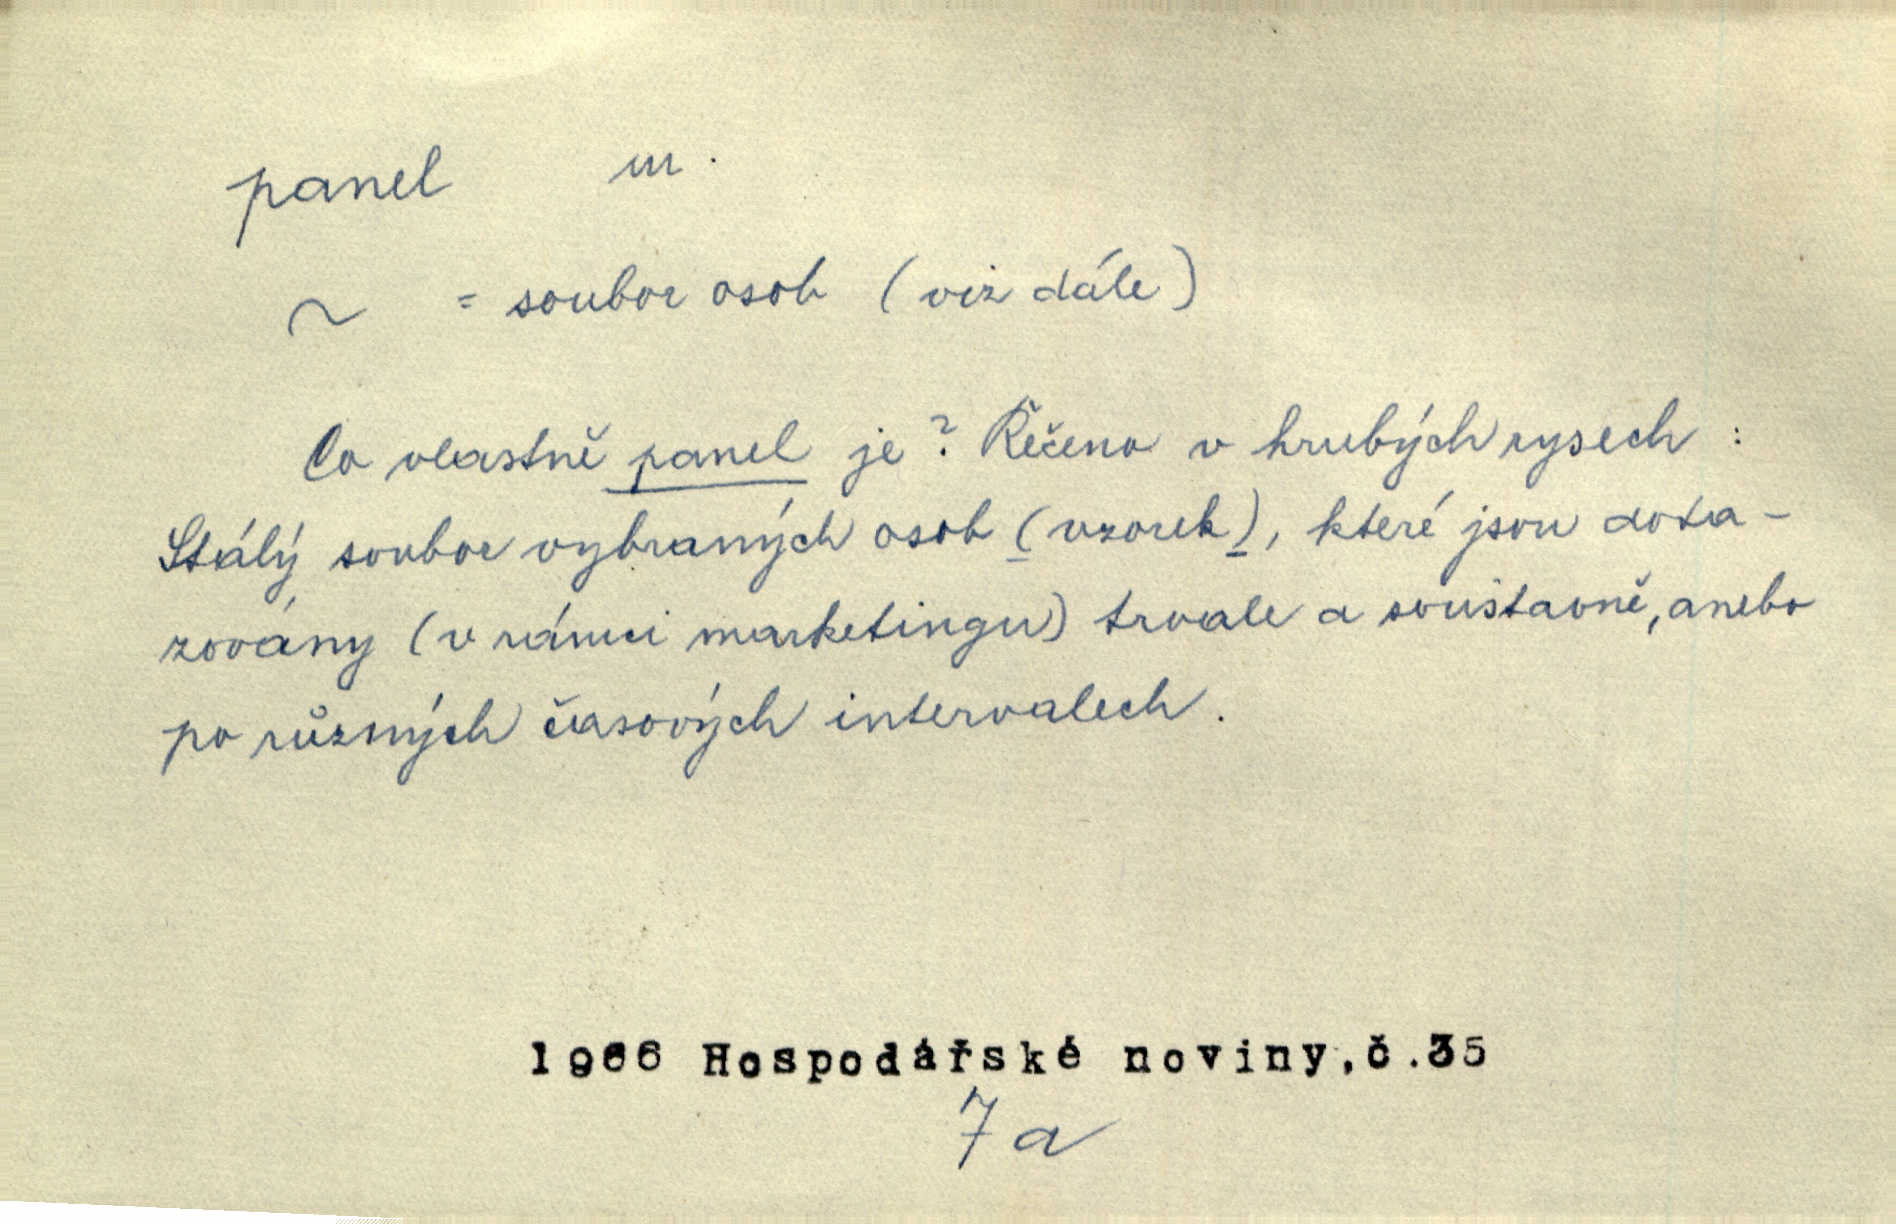 panel m.
~ = soubor osob (viz dále)
Co vlastně panel je? Řečeno v hrubých rysech :
Stálý soubor vybraných osob (vzorek), které jsou dota-
zovány (v rámci marketingu) trvale a soustavně, anebo
po různých časových intervalech.
1966 Hospodářské noviny,č.35
7a